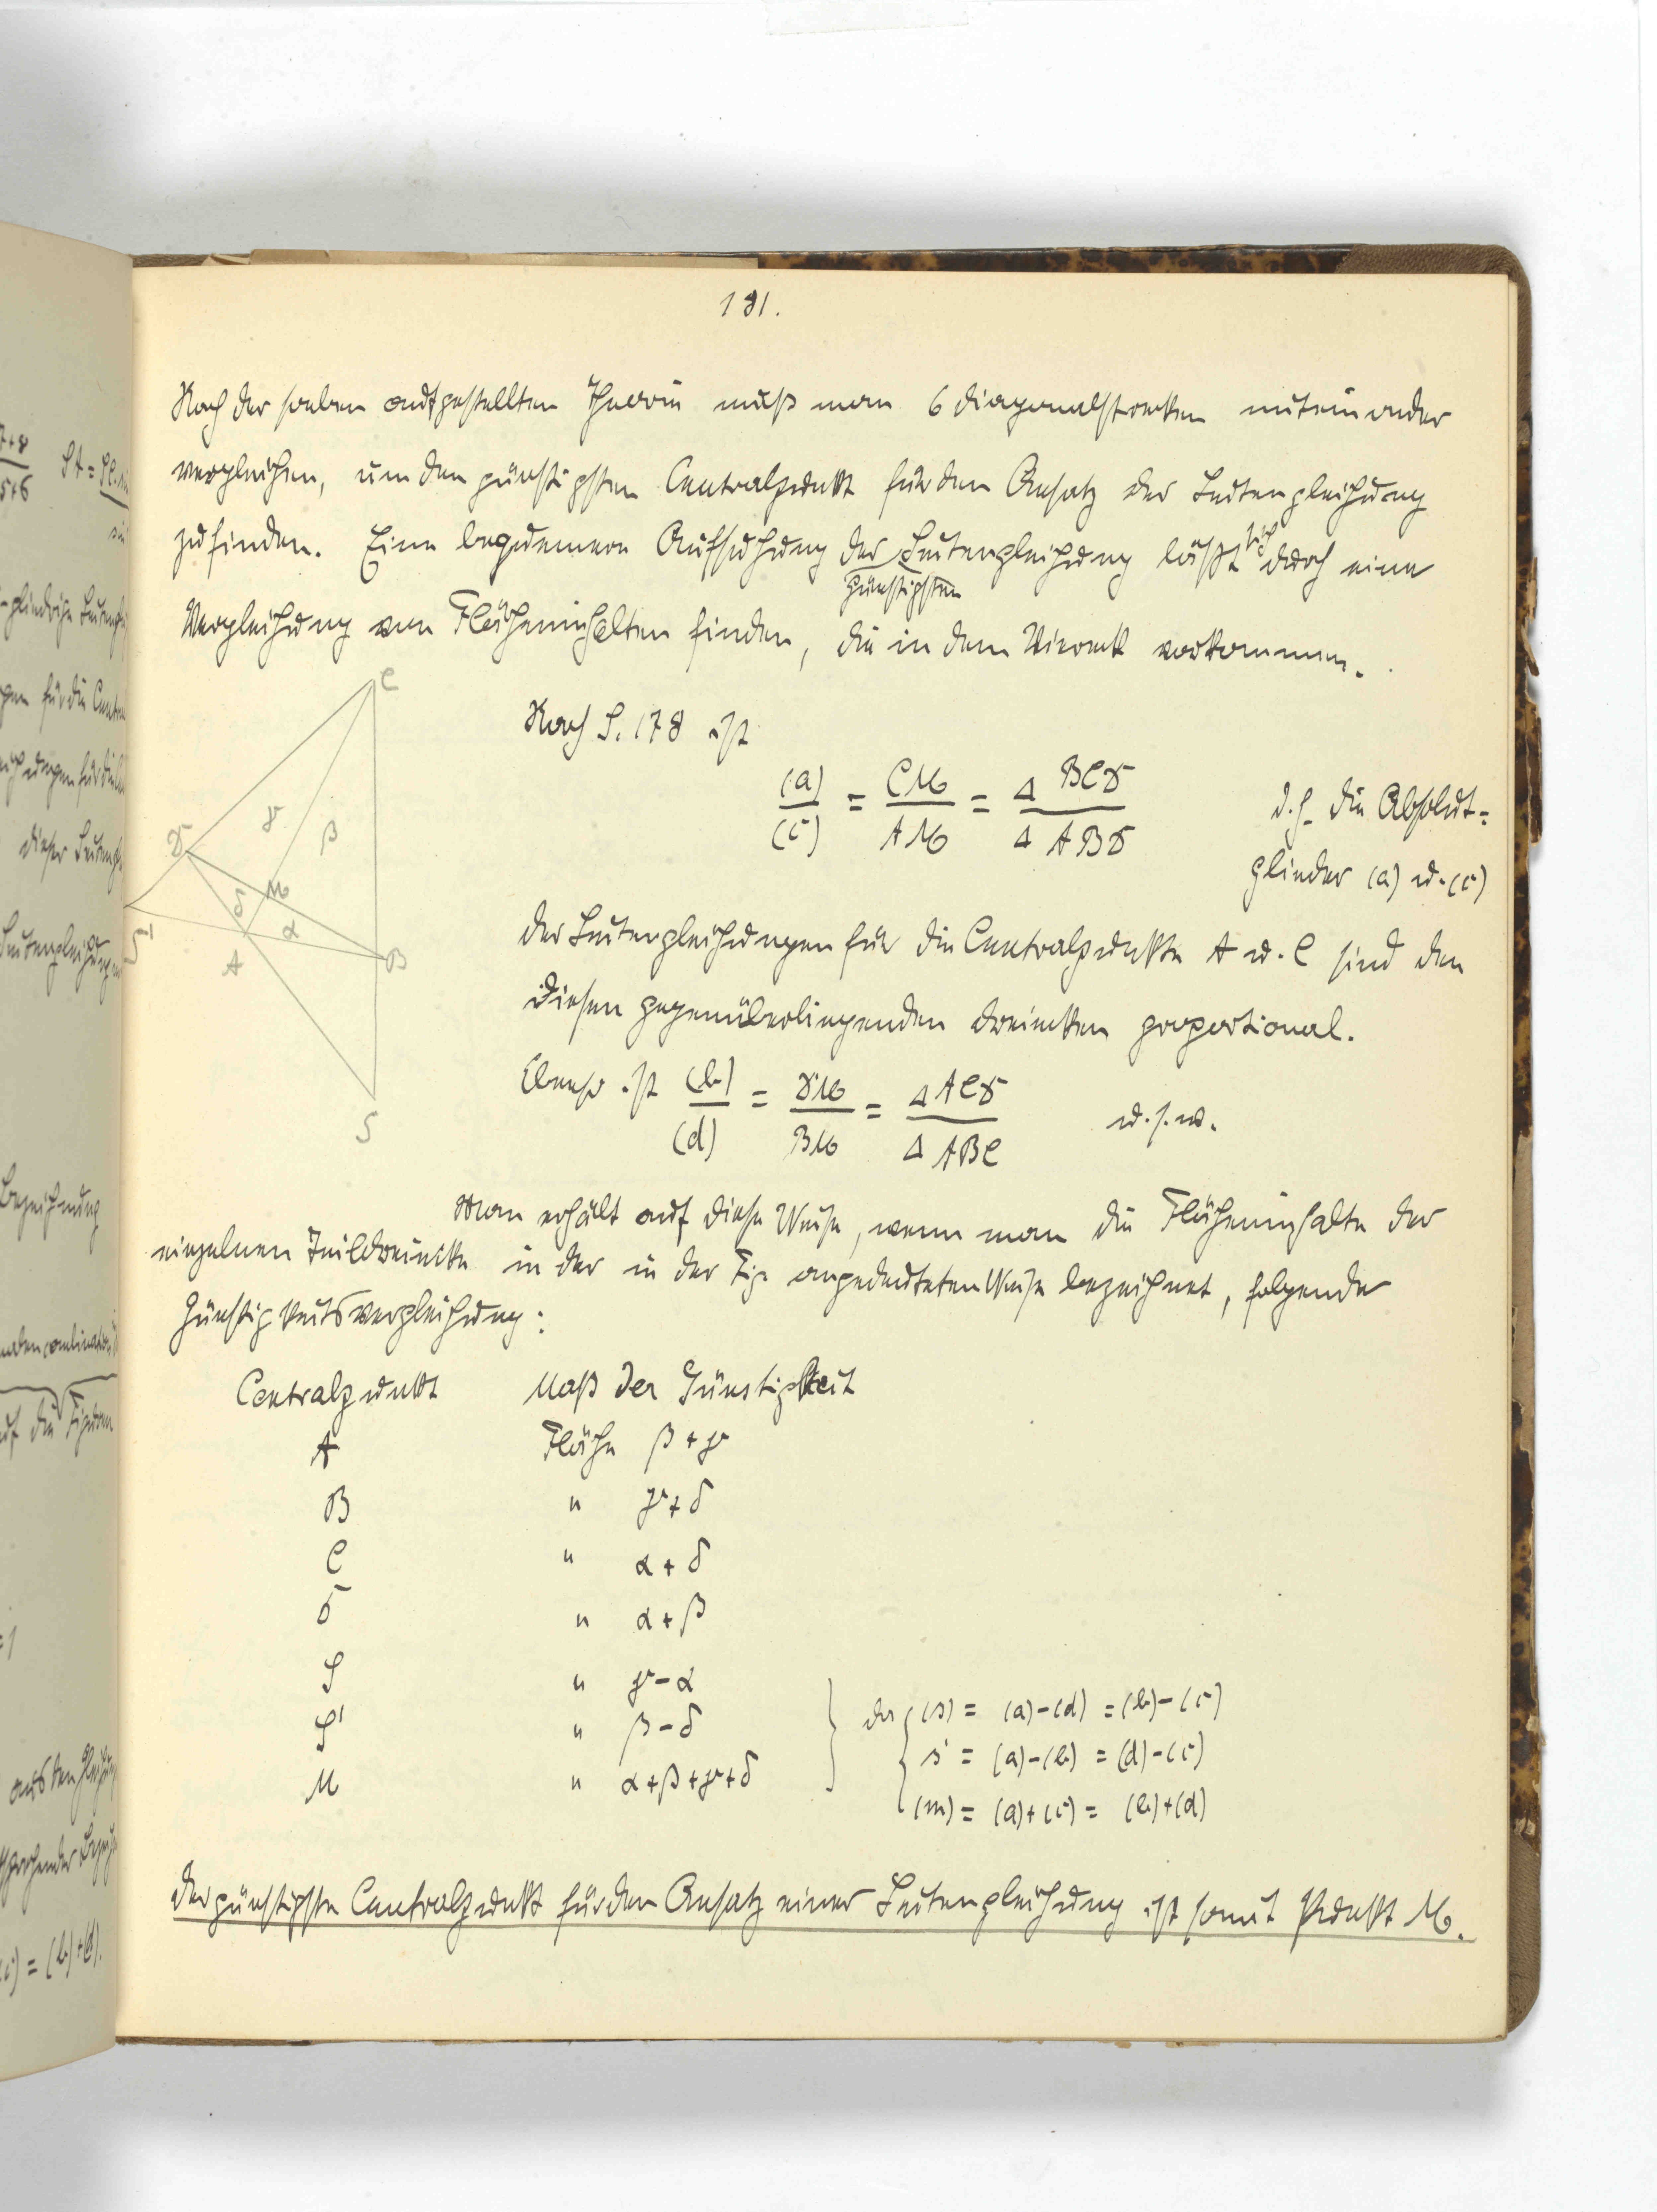 181.
Nach der soeben aufgestellten Theorie muß man 6 Diagonalstrecken miteinander
vergleichen, um den günstigsten Centralpunkt für den Ansatz der Seitengleichung
zu finden. Eine bequemere Aufsuchung der günstigsten Seitengleichung läßt sich durch eine
Vergleichung von Flächeninhalten finden, die in dem Viereck vorkommen.
C
D
γ
β
M
δ
α
S'
A
B
S
Nach S. 178 ist
(a)/(c) = CM/AM = Δ BCD/Δ ABD d.h. die Absolut-
glieder (a) u. (c)
der Seitengleichungen für die Centralpunkte A u. C sind den
diesen gegenüberliegenden Dreiecken proportional.
Ebenso ist (b)/(d) = DM/BM = Δ ACD/Δ ABC u.s.w.
Man erhält auf diese Weise, wenn man die Flächeninhalte der
einzelnen Teildreiecke in der in der Fig. angedeuteten Weise bezeichnet, folgende
Günstigkeitsvergleichung:
Centralpunkt Maß der Günstigkeit
A Fläche β + γ
B " γ + δ
C " α + δ
D " α + β
S " γ - α
S' " β - δ
M " α + β + γ + δ
da (s) = (a) - (d) = (b) - (c)
s' = (a) - (b) = (d) - (c)
(m) = (a) + (c) = (b) + (d)
Der günstigste Centralpunkt für den Ansatz einer Seitengleichung ist somit Punkt M.
7+8
5+6
(c) = (b) + (d).